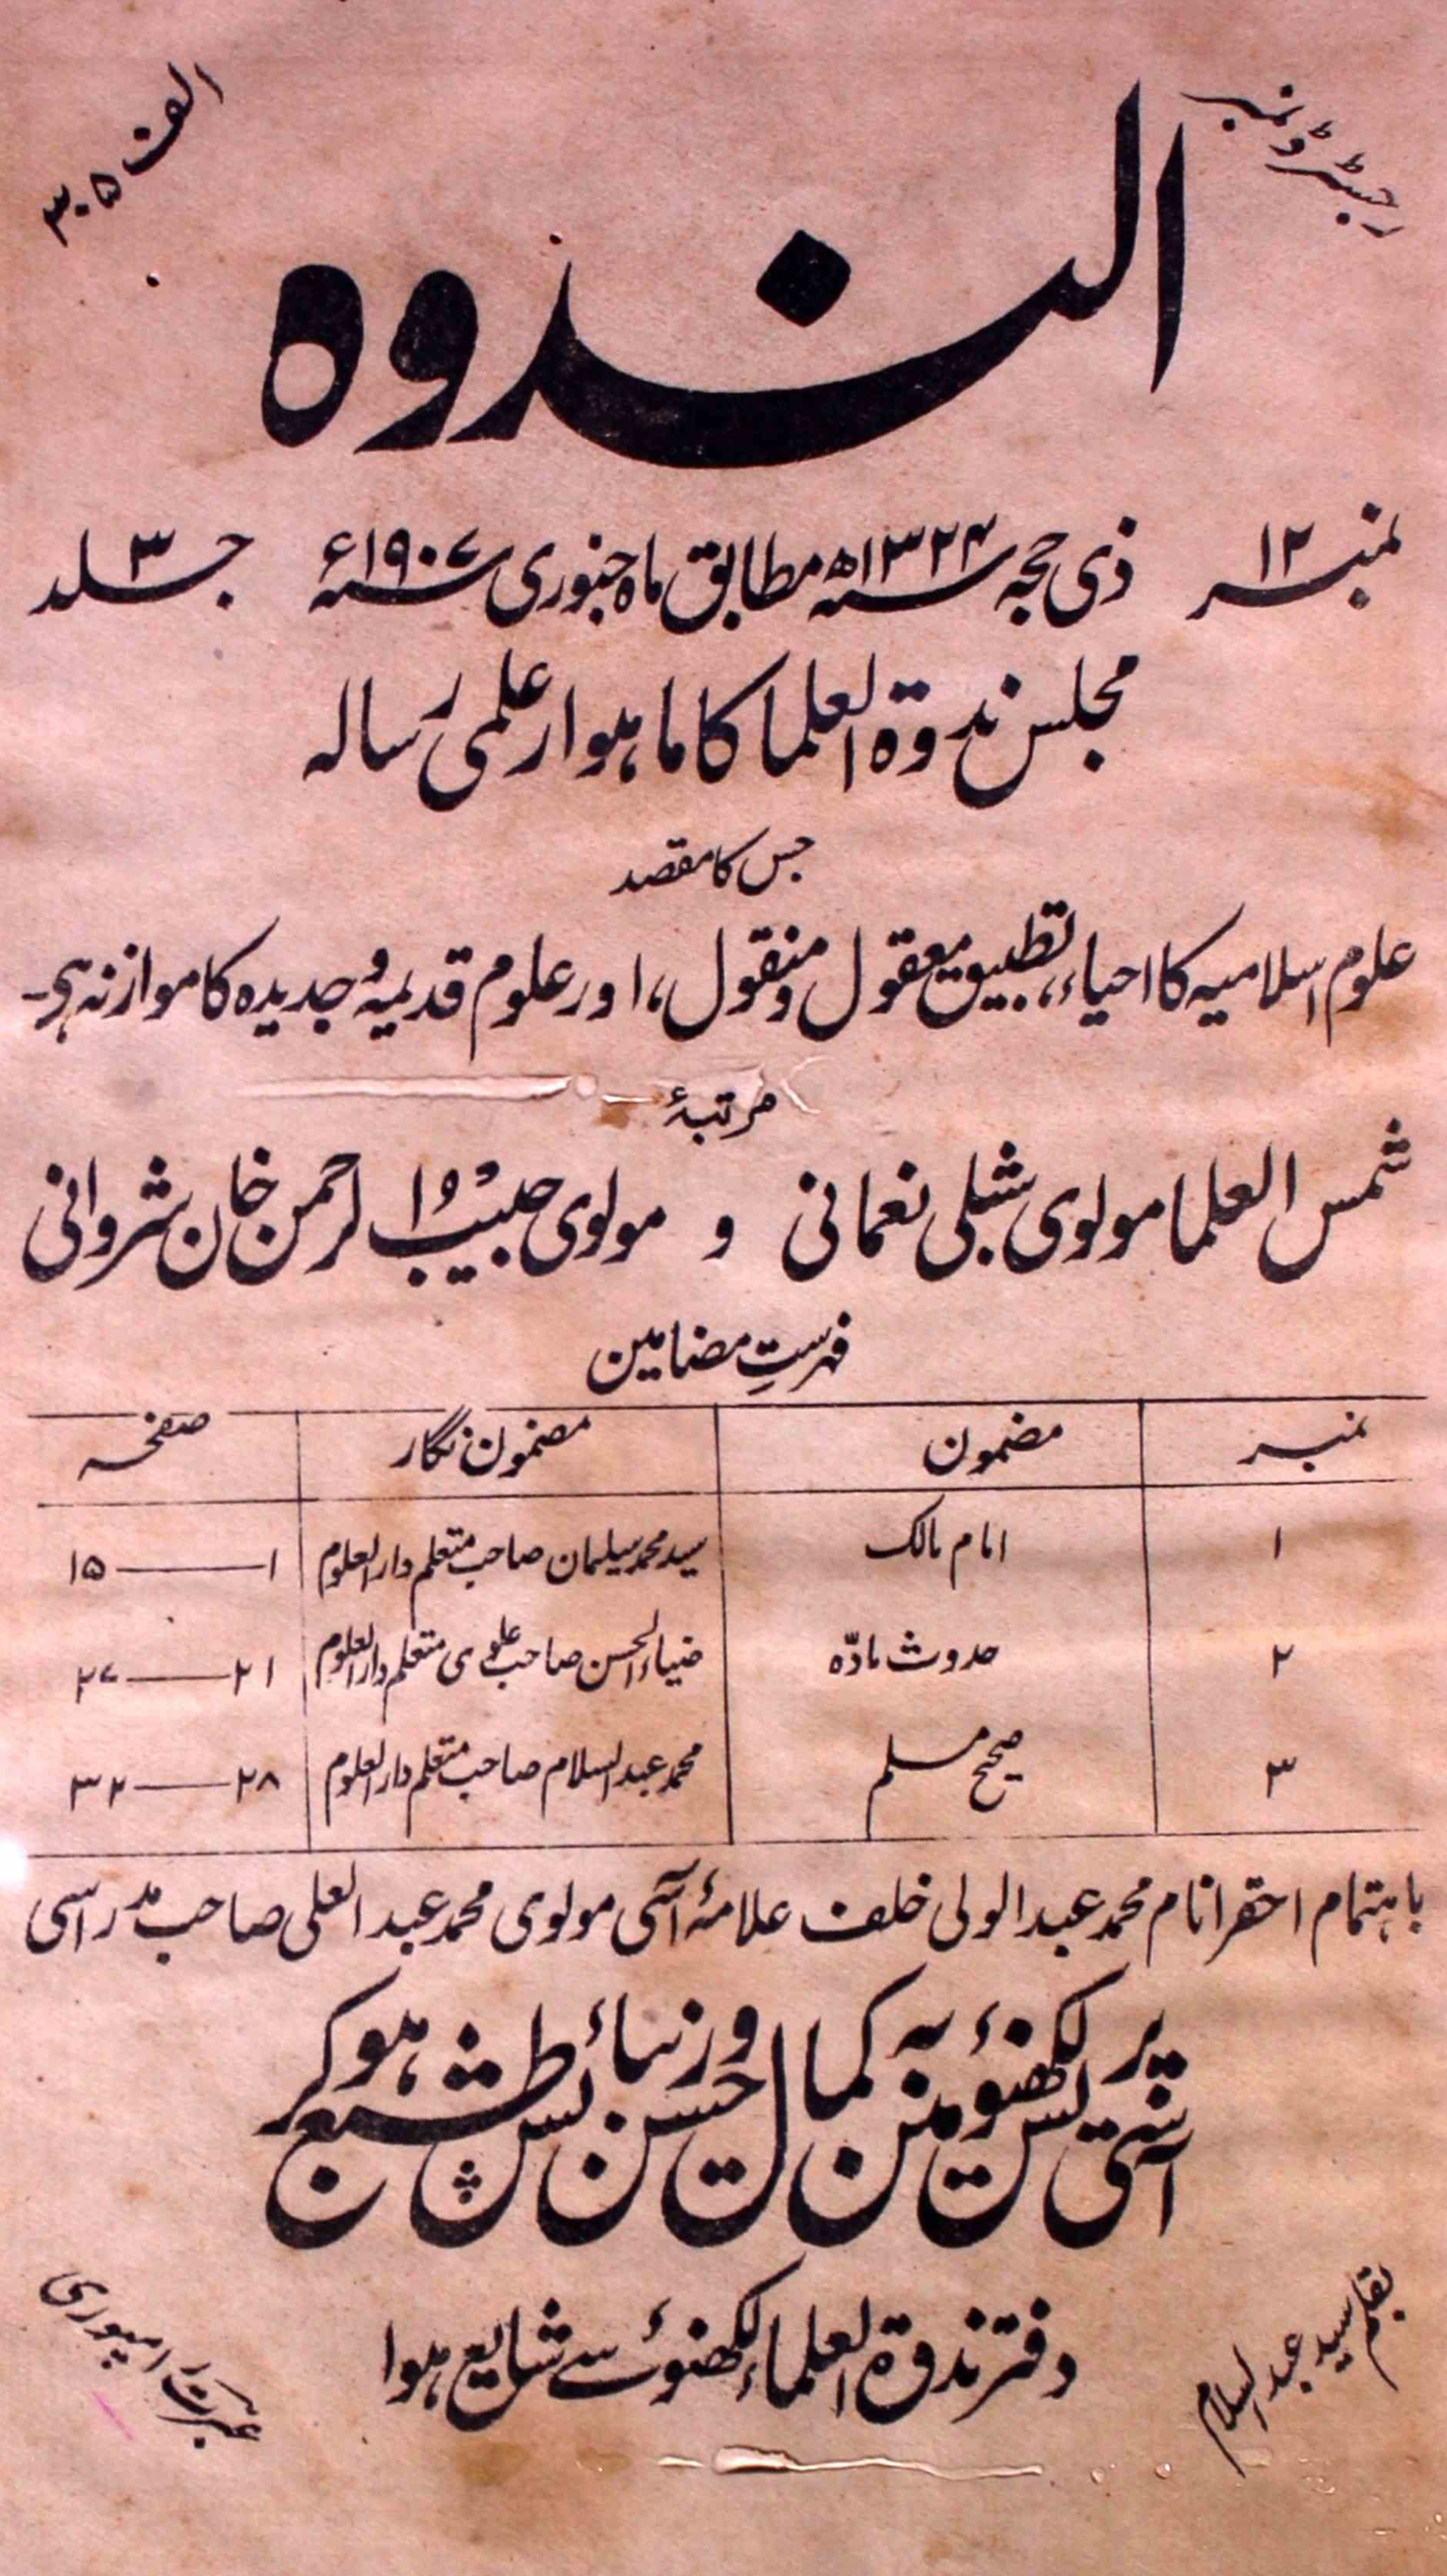 رجسٹرڈ نمبر
الف ۳۰۵
الندوہ
نمبر ۱۲ ذی حجہ سنہ ۱۳۲۴ھ مطابق ماہ جنوری سنہ ۱۹۰۷ء جلد ۳
مجلس ندوۃ العلما کا ماہوار علمی رسالہ
جس کا مقصد
علوم اسلامیہ کا احیاء، تطبیق معقول و منقول، اور علوم قدیمہ و جدیدہ کا موازنہ ہی-
مرتبۂ
شمس العلما مولوی شبلی نعمانی و مولوی حبیب الرحمن خان شروانی
فہرستِ مضامین
نمبر مضمون مضمون نگار صفحہ
۱ امام مالک سید محمد سلیمان صاحب متعلم دار العلوم ۱ — ۱۵
۲ حدوث مادّہ ضیاء الحسن صاحب علوی متعلم دار العلوم ۲۱ — ۲۷
۳ صحیح مسلم محمد عبد السلام صاحب متعلم دار العلوم ۲۸ — ۳۲
باہتمام احقر انام محمد عبد الولی خلف علامۂ آسی مولوی محمد عبد العلی صاحب مدراسی
آسی پریس لکھنؤ مین بہ کمال حسن و زیبائش طبع ہو کر
دفتر ندوۃ العلماء لکھنؤ سے شایع ہوا
بقلم سید عبد السلام
عبرت رامپوری